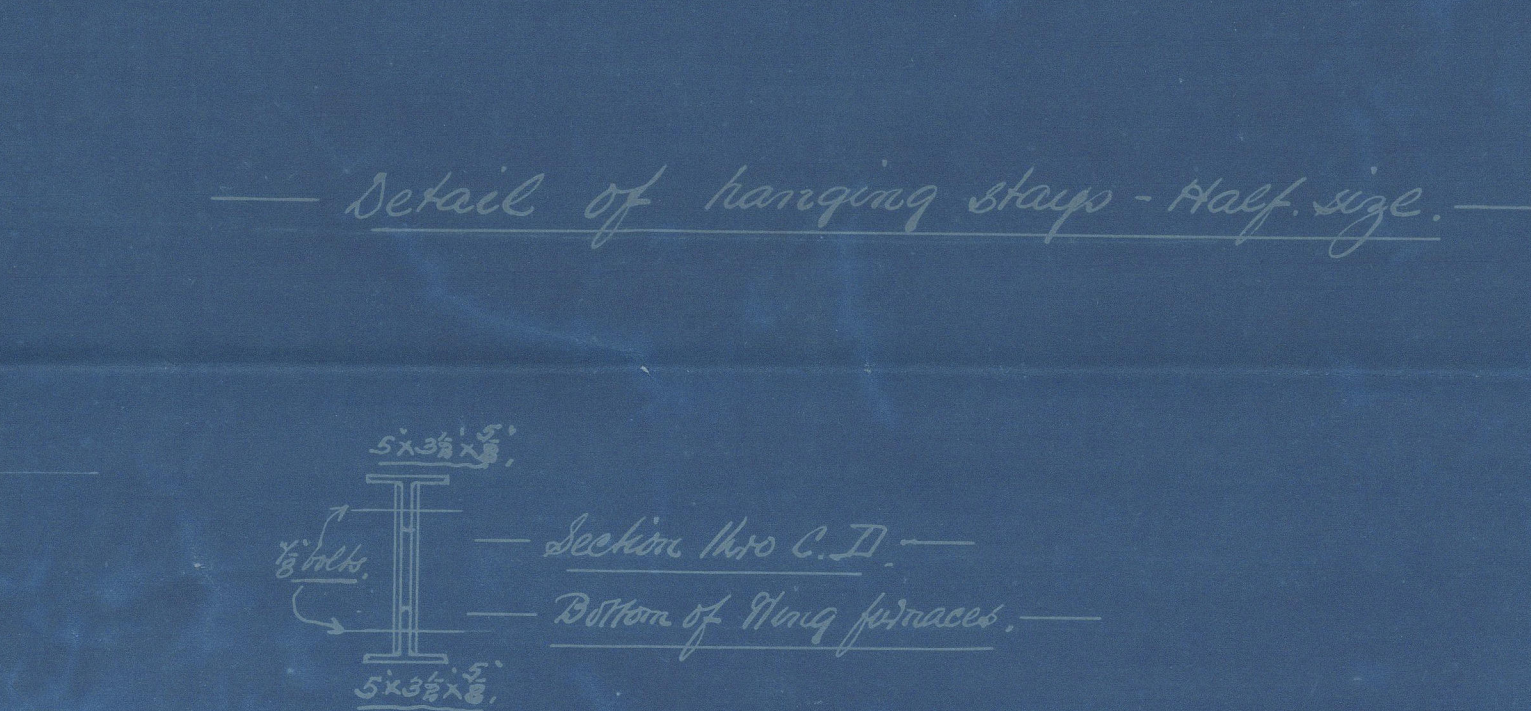 Detail of hanging stays - Half. size.
5" x 3 1/2" x 5/8",
Section thro C. D.
bolts.
Bottom of Wing furnaces.
5" x 3 1/2" x 5/8",